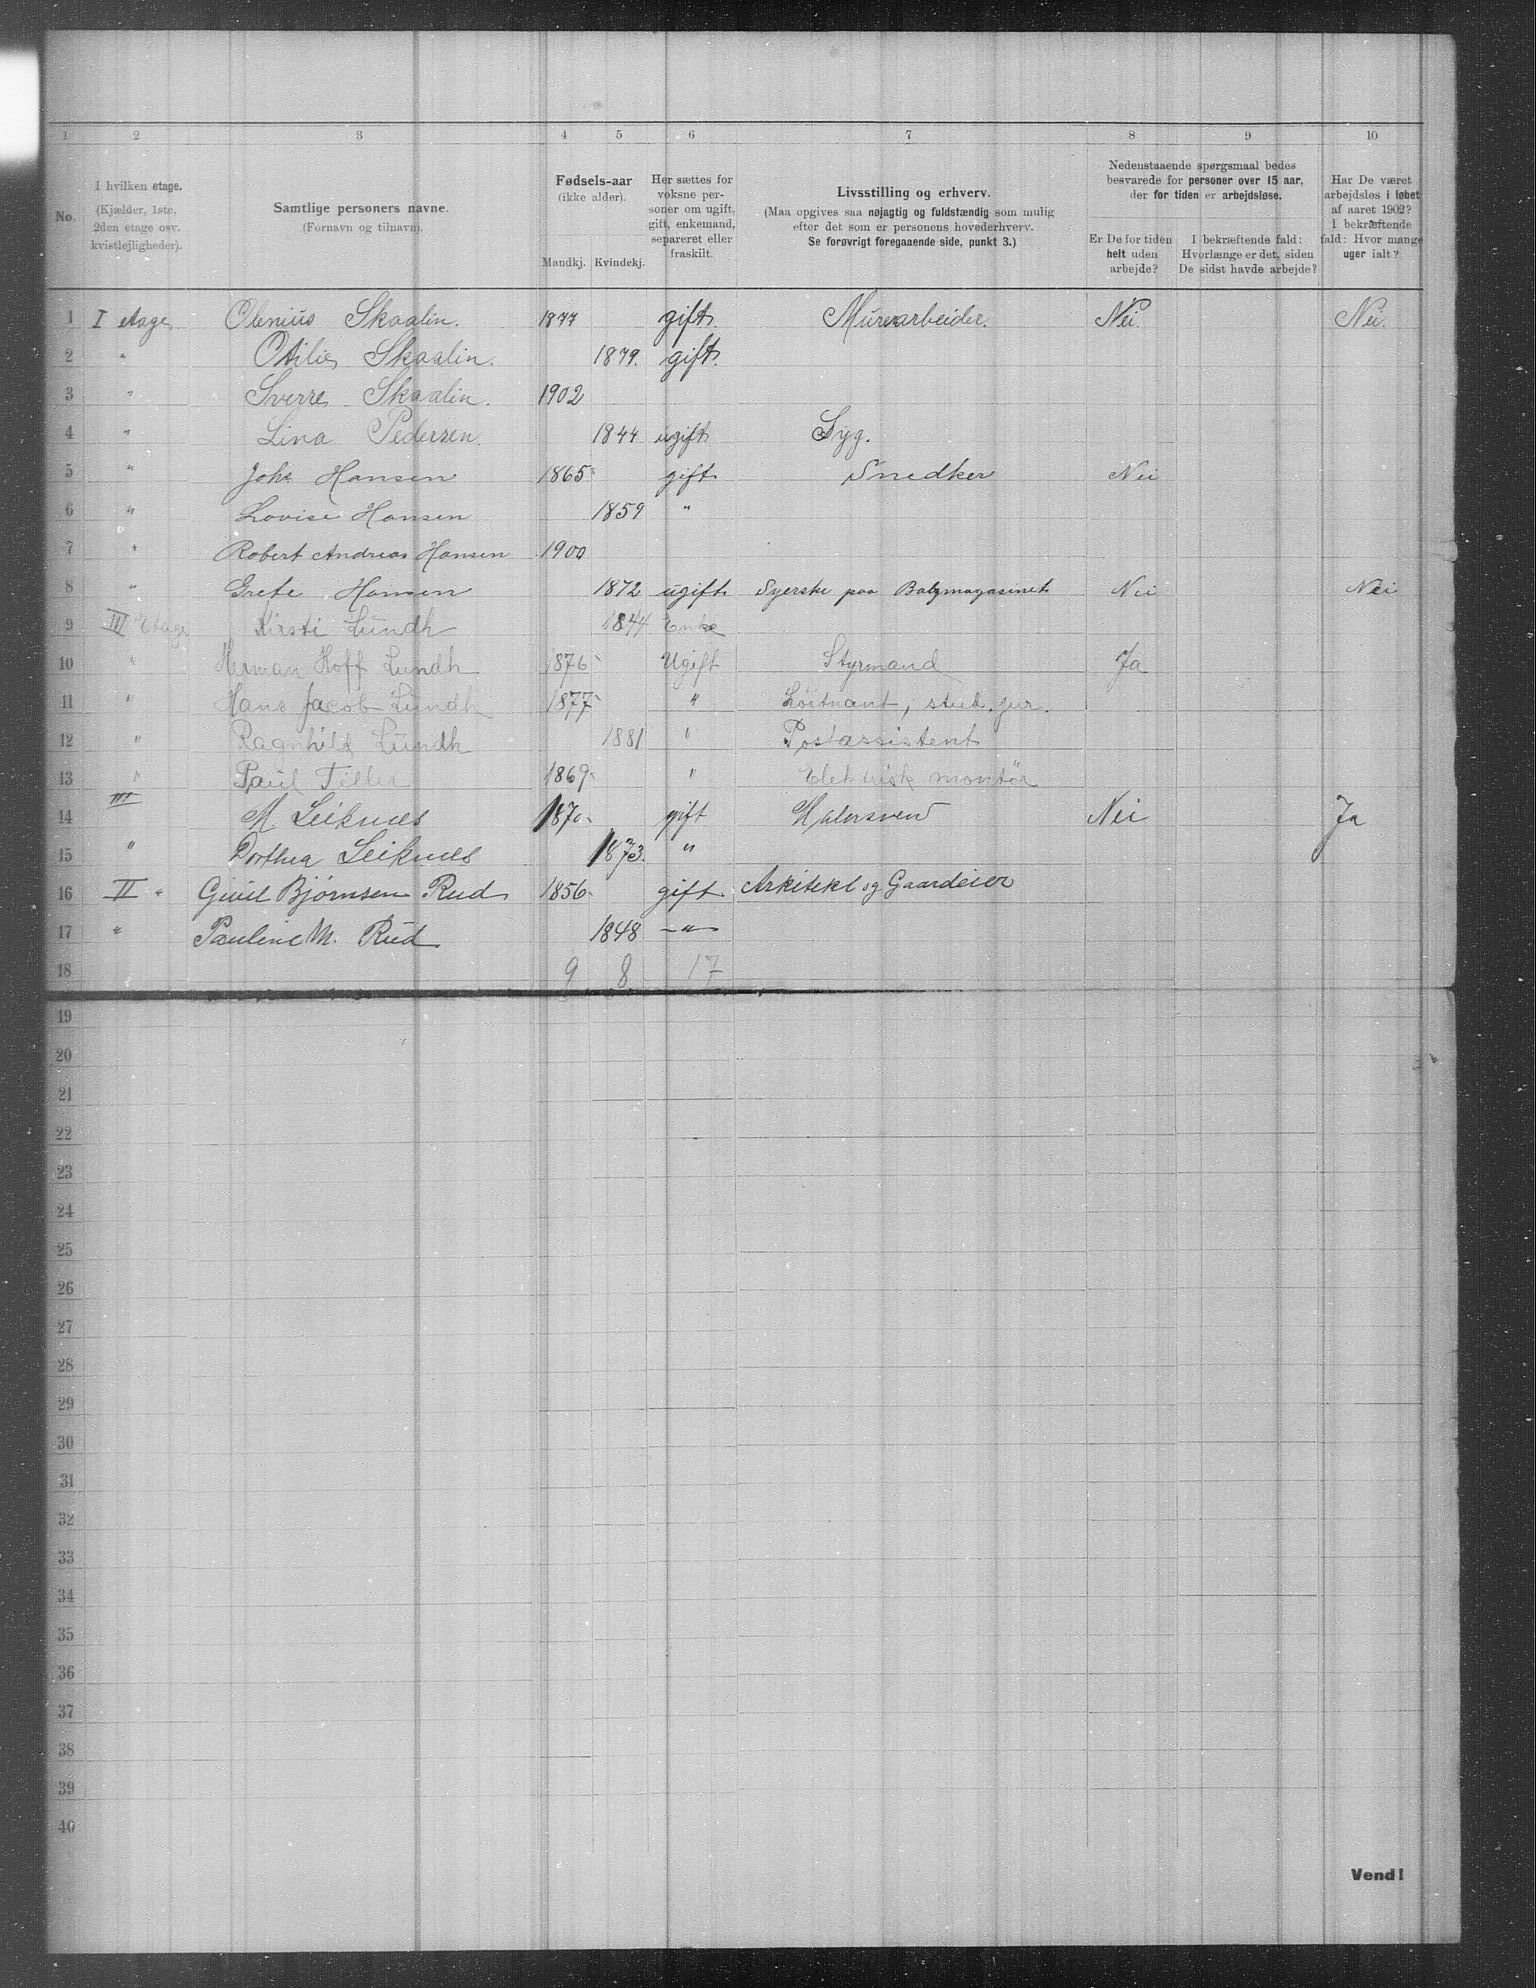 1 2 3 4 5 6 7 8 9 10
No.
I hvilken etage.
(Kjælder, 1ste,
2den etage osv.
kvistlejligheder).
Samtlige personers navne.
(Fornavn og tilnavn).
Fødsels-aar
(ikke alder).
Mandkj. Kvindekj.
Her sættes for
voksne per-
soner om ugift,
gift, enkemand,
separeret eller
fraskilt.
Livsstilling og erhverv.
(Maa opgives saa nøjagtig og fuldstændig som mulig
efter det som er personens hovederhverv.
Se forøvrigt foregaaende side, punkt 3.)
Nedenstaaende spørgsmaal bedes
besvarede for personer over 15 aar,
der for tiden er arbejdsløse.
Er De for tiden
helt uden
arbejde?
I bekræftende fald:
Hvorlænge er det, siden
De sidst havde arbejde?
Har De været
arbejdsløs i løbet
af aaret 1902?
I bekræftende
fald: Hvor mange
uger ialt?
1 I etage Olenius Skaalin. 1877 gift. Murerarbeider. Nei. Nei.
2 " Otilie Skaalin. 1879. gift.
3 " Sverre Skaalin. 1902
4 " Lina Pedersen. 1844 ugift Syg.
5 " Johs Hansen 1865 gift Snedker Nei
6 " Lovise Hansen 1859 "
7 " Robert Andreas Hansen 1900
8 " Grete Hansen 1872 ugift Syerske paa Nei Nei
9 III Etage Kirsti Lundh 1844 Enke
10 " Herman Hoff Lundh 1876 Ugift Styrmand Ja
11 " Hans Jacob Lundh 1877 " Løitnant, stud. jur.
12 " Ragnhild Lundh 1881 " Postassistent
13 " Paul Tiller 1869 " Elektrisk montör
14 III M Leiknes 1870 gift Malersvend Nei Ja
15 " Dorthea Leiknes 1873. "
16 II " Bjørnsen Rud 1856 gift Arkitekt og Gaardeier
17 " Pauline M. Rud 1848 -"-
18 9 8 17
19
20
21
22
23
24
25
26
27
28
29
30
31
32
33
34
35
36
37
38
39
40
Vend!